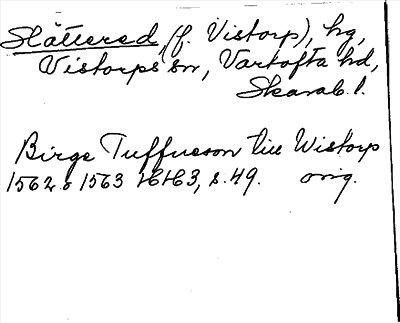 Slättered, (f. Vistorp), hg,
Vistorps sn, Vartofta hd,
Skarab. l.
Birge Tuffueson till Wistorp
1562 o 1563 16163, s. 49. orig.